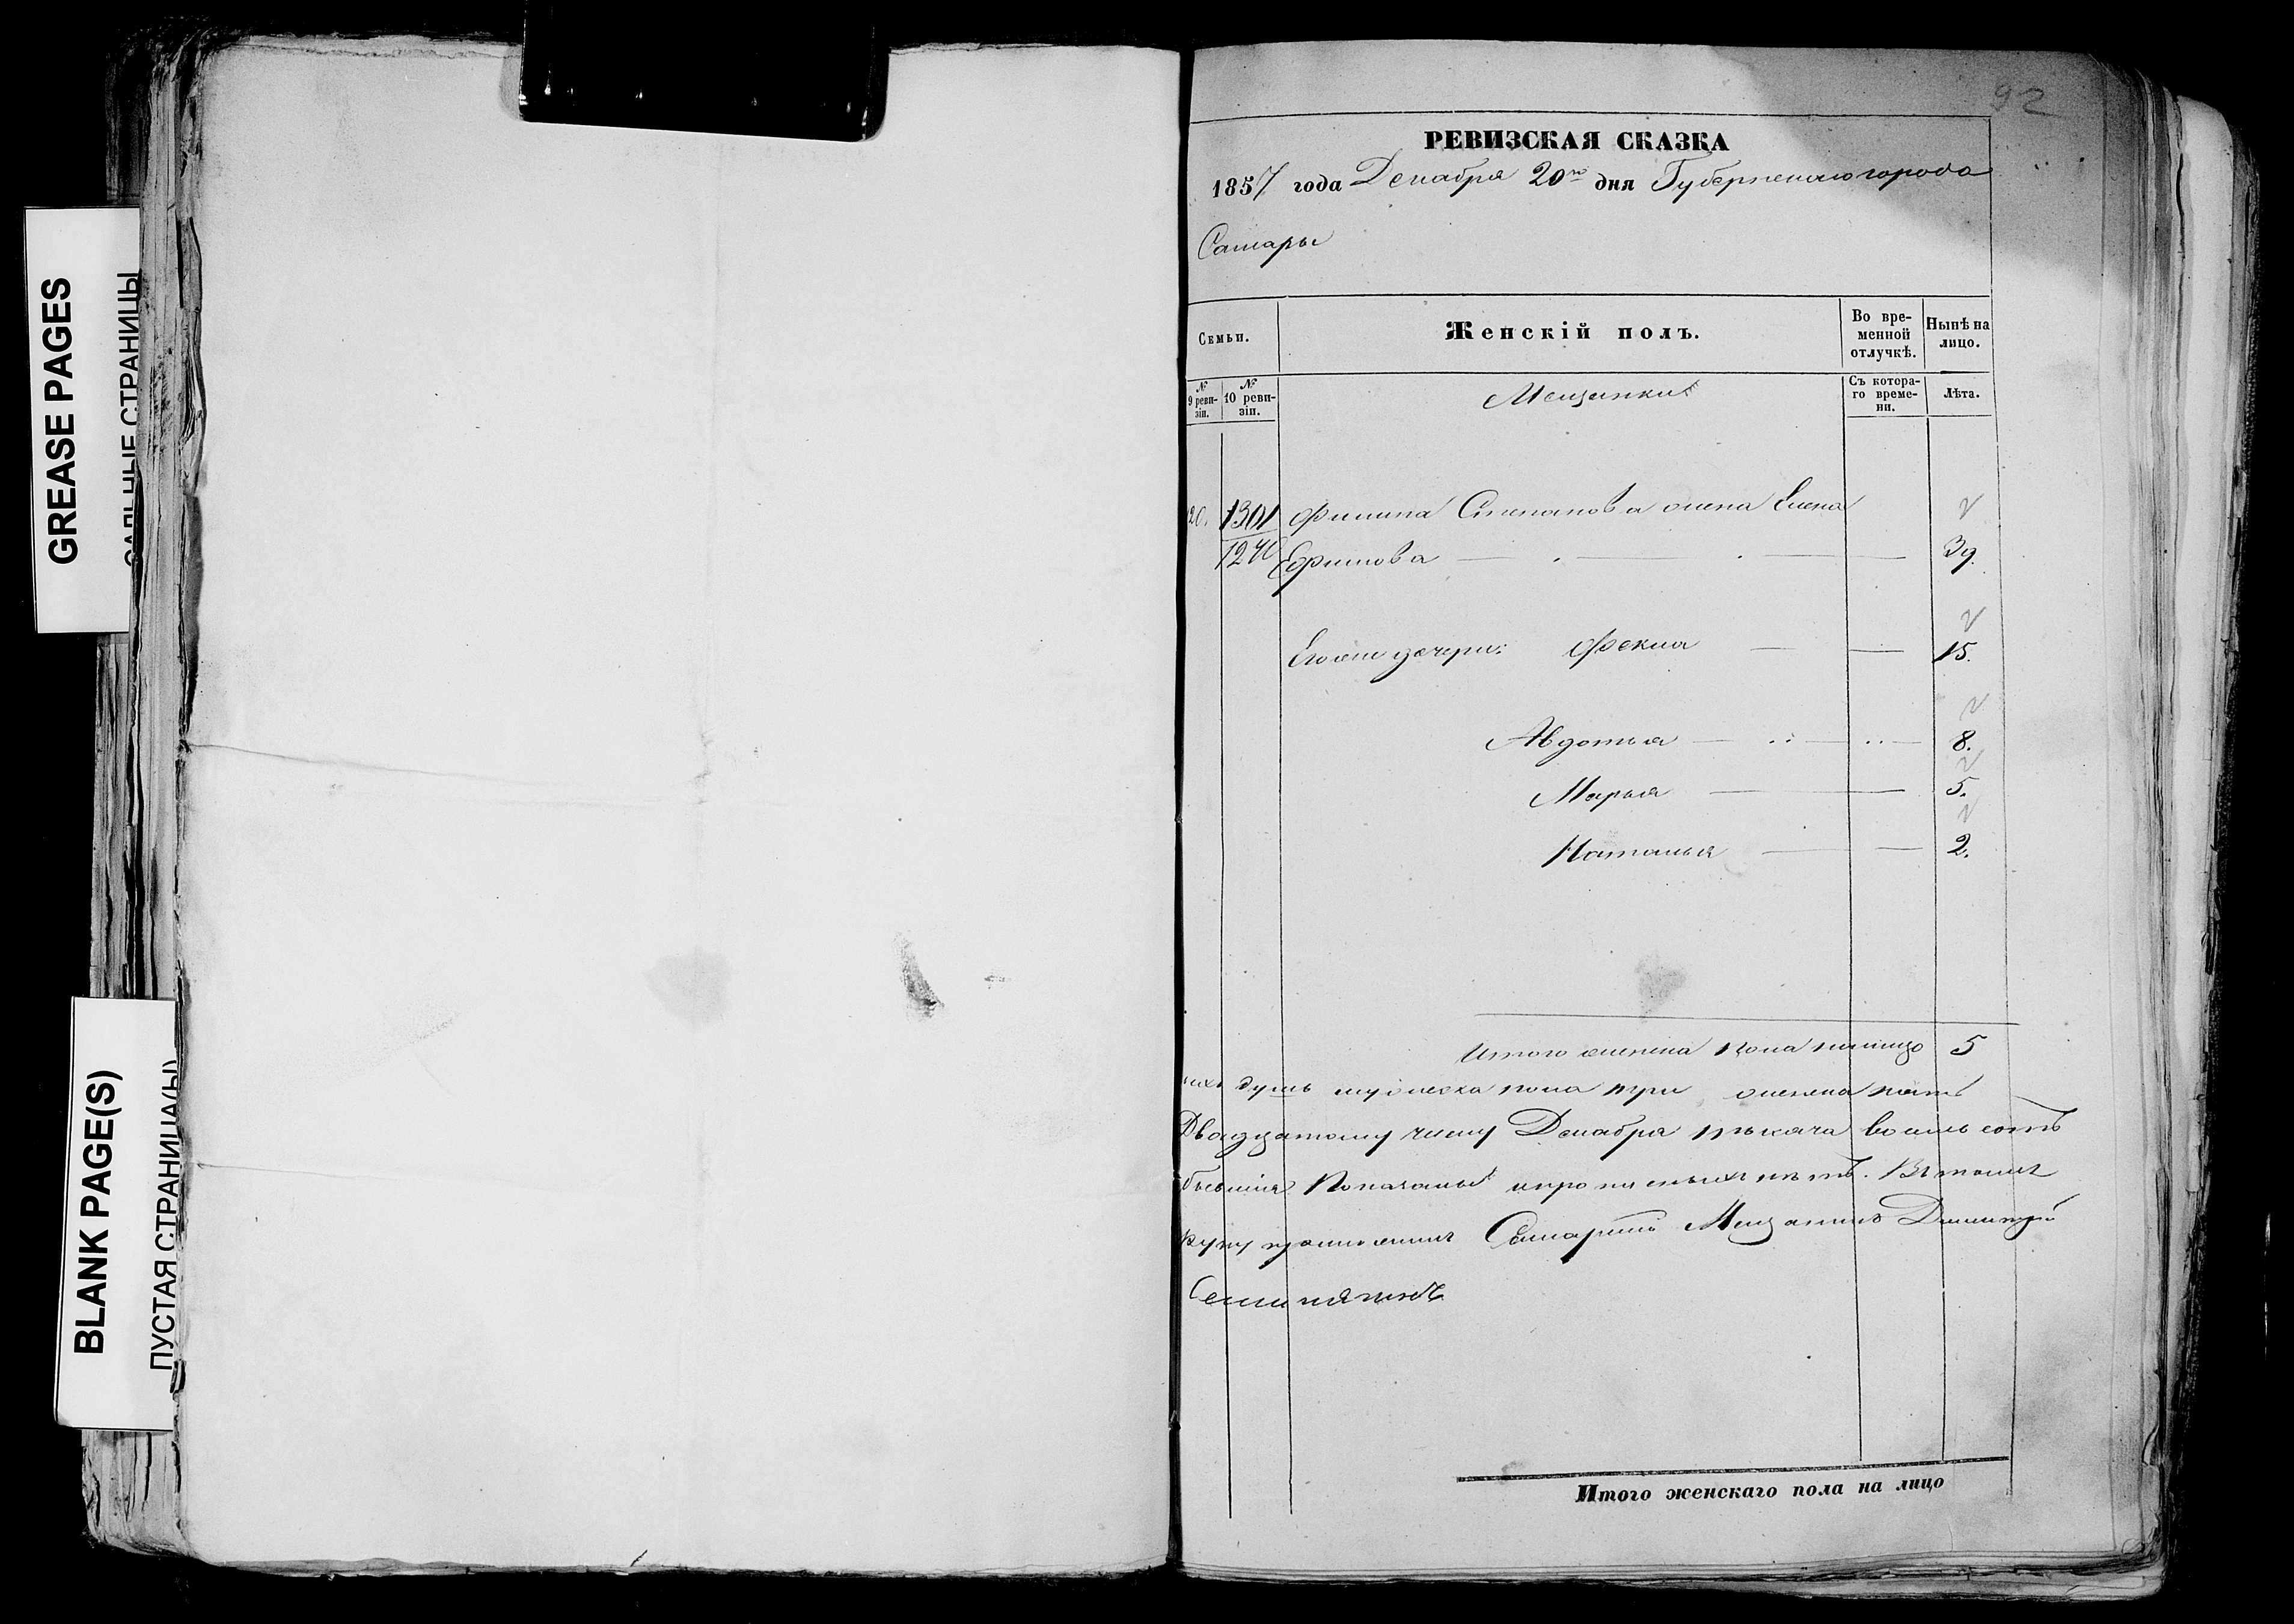 GREASE PAGES
САЛЬНЫЕ СТРАНИЦЫ
BLANK PAGE(S)
ПУСТАЯ СТРАНИЦА(Ы)
92
РЕВИЗСКАЯ СКАЗКА
1857 года Декабря 20го дня Губернскаго города
Самары
Семьи.
Женскій полъ.
Во вре-
менной
отлучкѣ.
Нынѣ на
лицо.
№
9 реви-
зіи.
№
10 реви-
зіи.
Мещанки
Съ котора-
го време-
ни.
Лѣта.
20. 1301 Филипа Степанова жена Елена
1240 Ефимова 39.
Его дочери: Фекла 15.
Авдотья 8.
Марья 5.
Наталья 2.
Итого женска пола налицо 5
ихъ душъ мужеска пола три женска пять
Двадцатому числу Декабря тысяча восемь сотъ
Показаны и прописныхъ нѣтъ. Въ томъ
Мещанинъ Димитрій
Итого женскаго пола на лицо